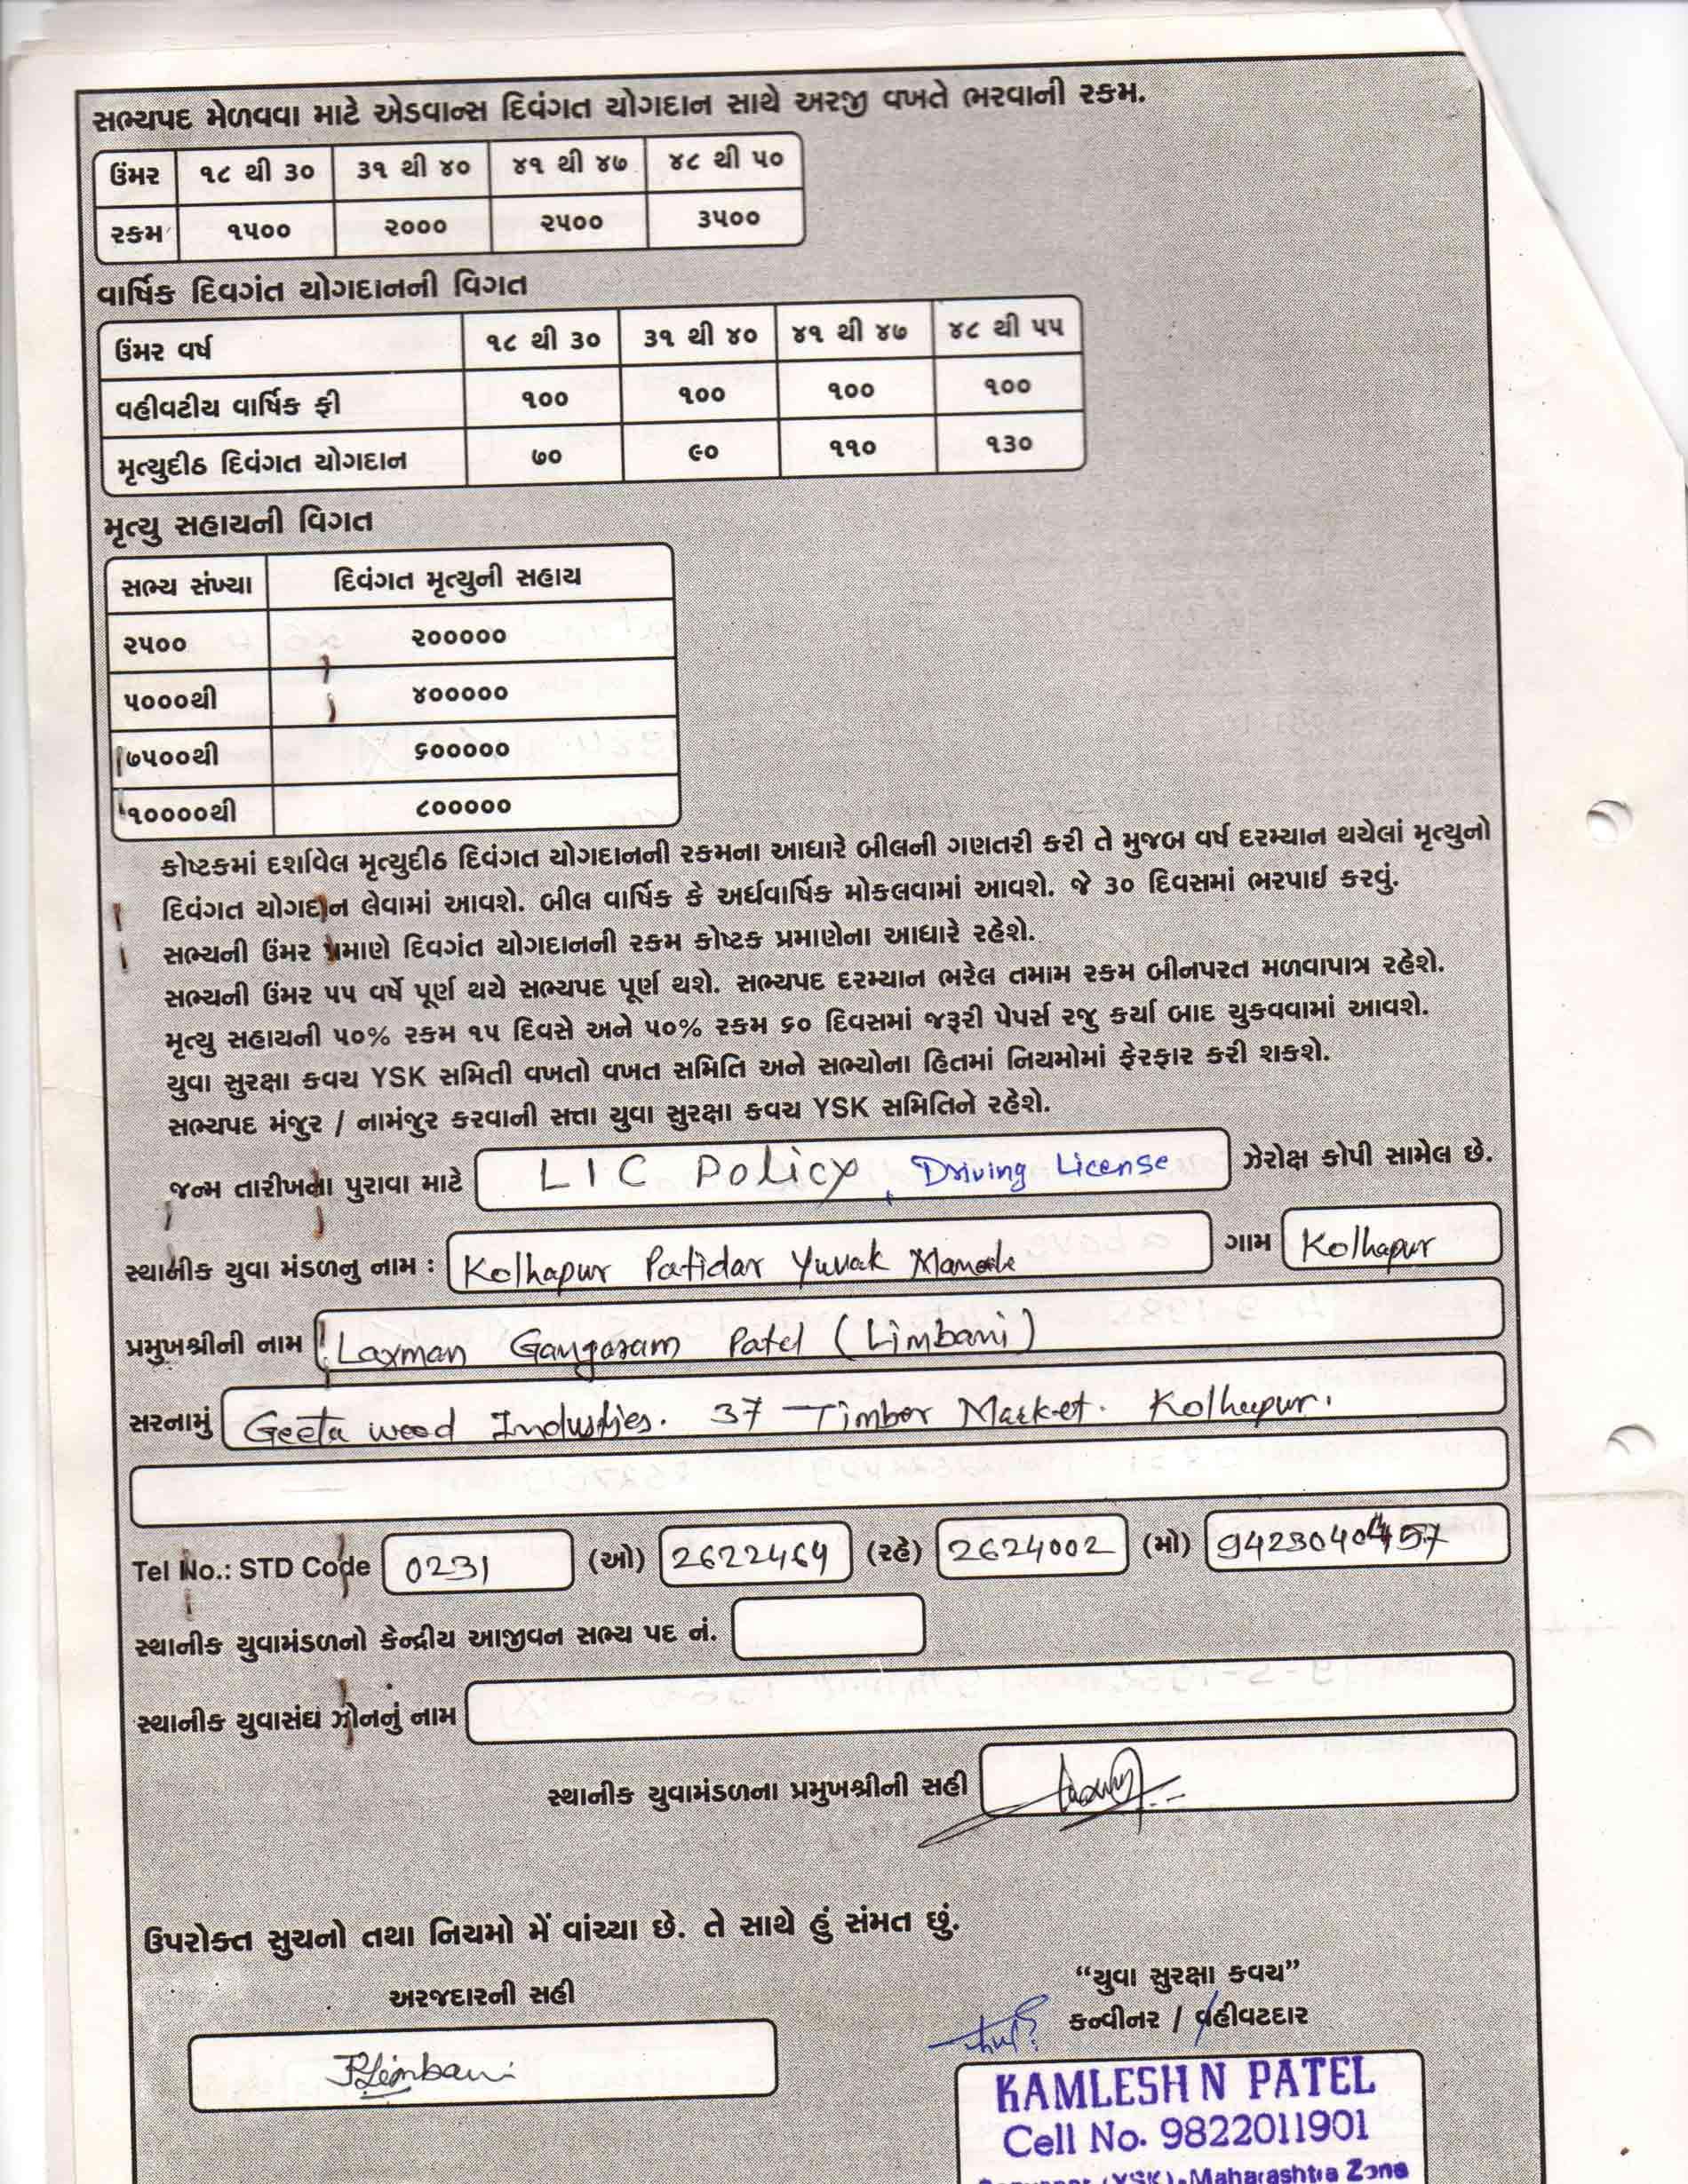 સભ્યપદ મેળવવા માટે એડવાન્સ દિવંગત યોગદાન સાથે અરજી વખતે ભરવાની રકમ.
ઉંમર ૧૮ થી ૩૦ ૩૧ થી ૪૦ ૪૧ થી ૪૭ ૪૮ થી ૫૦
રકમ ૧૫૦૦ ૨૦૦૦ ૨૫૦૦ ૩૫૦૦
વાર્ષિક દિવગંત યોગદાનની વિગત
ઉંમર વર્ષ ૧૮ થી ૩૦ ૩૧ થી ૪૦ ૪૧ થી ૪૭ ૪૮ થી ૫૫
વહીવટીય વાર્ષિક ફી ૧૦૦ ૧૦૦ ૧૦૦ ૧૦૦
મૃત્યુદીઠ દિવંગત યોગદાન ૭૦ ૯૦ ૧૧૦ ૧૩૦
મૃત્યુ સહાયની વિગત
સભ્ય સંખ્યા દિવંગત મૃત્યુની સહાય
૨૫૦૦ ૨૦૦૦૦૦
૫૦૦૦થી ૪૦૦૦૦૦
૭૫૦૦થી ૬૦૦૦૦૦
૧૦૦૦૦થી ૮૦૦૦૦૦
કોષ્ટકમાં દર્શાવેલ મૃત્યુદીઠ દિવંગત યોગદાનની રકમના આધારે બીલની ગણતરી કરી તે મુજબ વર્ષ દરમ્યાન થયેલાં મૃત્યુનો
દિવંગત યોગદાન લેવામાં આવશે. બીલ વાર્ષિક કે અર્ધવાર્ષિક મોકલવામાં આવશે. જે ૩૦ દિવસમાં ભરપાઈ કરવું.
સભ્યની ઉંમર પ્રમાણે દિવગંત યોગદાનની રકમ કોષ્ટક પ્રમાણેના આધારે રહેશે.
સભ્યની ઉંમર ૫૫ વર્ષે પૂર્ણ થયે સભ્યપદ પૂર્ણ થશે. સભ્યપદ દરમ્યાન ભરેલ તમામ રકમ બીનપરત મળવાપાત્ર રહેશે.
મૃત્યુ સહાયની ૫૦% રકમ ૧૫ દિવસે અને ૫૦% રકમ ૬૦ દિવસમાં જરૂરી પેપર્સ રજુ કર્યા બાદ ચુકવવામાં આવશે.
યુવા સુરક્ષા કવચ YSK સમિતી વખતો વખત સમિતિ અને સભ્યોના હિતમાં નિયમોમાં ફેરફાર કરી શકશે.
સભ્યપદ મંજુર / નામંજુર કરવાની સત્તા યુવા સુરક્ષા કવચ YSK સમિતિને રહેશે.
જન્મ તારીખના પુરાવા માટે LIC Policy, Driving License ઝેરોક્ષ કોપી સામેલ છે.
સ્થાનીક યુવા મંડળનુ નામ : Kolhapur Patidar Yuvak ગામ Kolhapur
પ્રમુખશ્રીની નામ Laxman Gangaram Patel (Limbani)
સરનામું Geeta wood Industries. 37 Timber Market. Kolhapur.
Tel No.: STD Code 0231 (ઓ) 2622464 (રહે) 2624002 (મો)
સ્થાનીક યુવામંડળનો કેન્દ્રીય આજીવન સભ્ય પદ નં.
સ્થાનીક યુવાસંઘ ઝોનનું નામ
સ્થાનીક યુવામંડળના પ્રમુખશ્રીની સહી
ઉપરોક્ત સુચનો તથા નિયમો મેં વાંચ્યા છે. તે સાથે હું સંમત છું.
અરજદારની સહી
"યુવા સુરક્ષા કવચ"
કન્વીનર / વહીવટદાર
KAMLESH N PATEL
Cell No. 9822011901
(YSK)-Maharashtra Zone